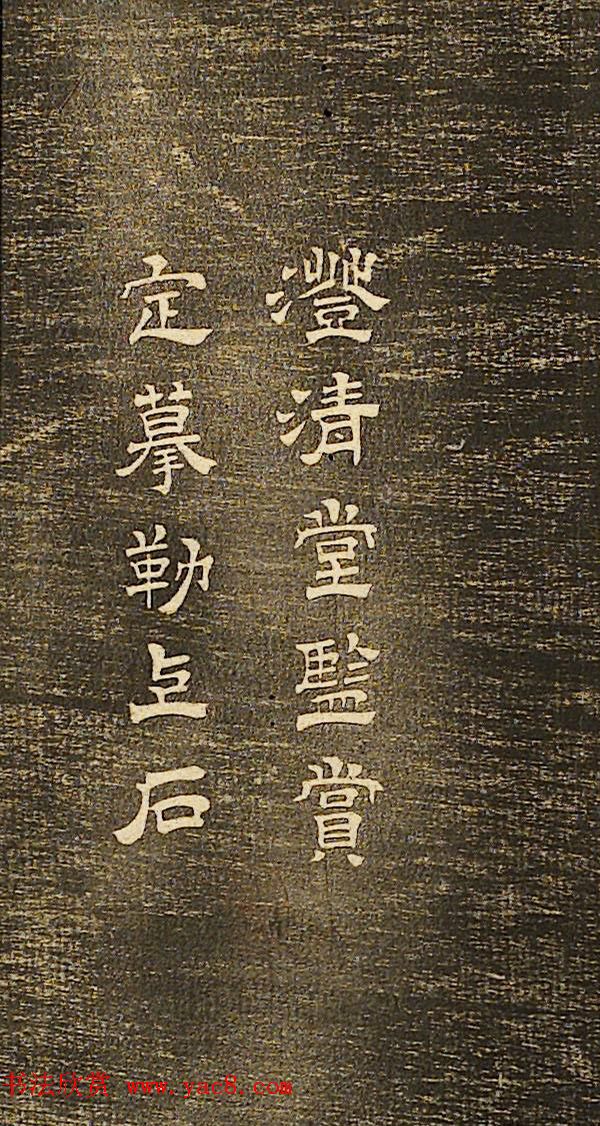 澄清堂監賞
定摹勒上石
书法欣赏 www.yac8.com